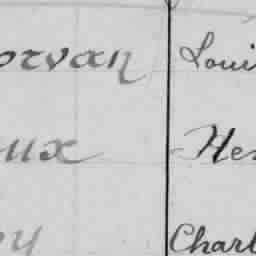 orvan Loui
ux Hen
y Charl